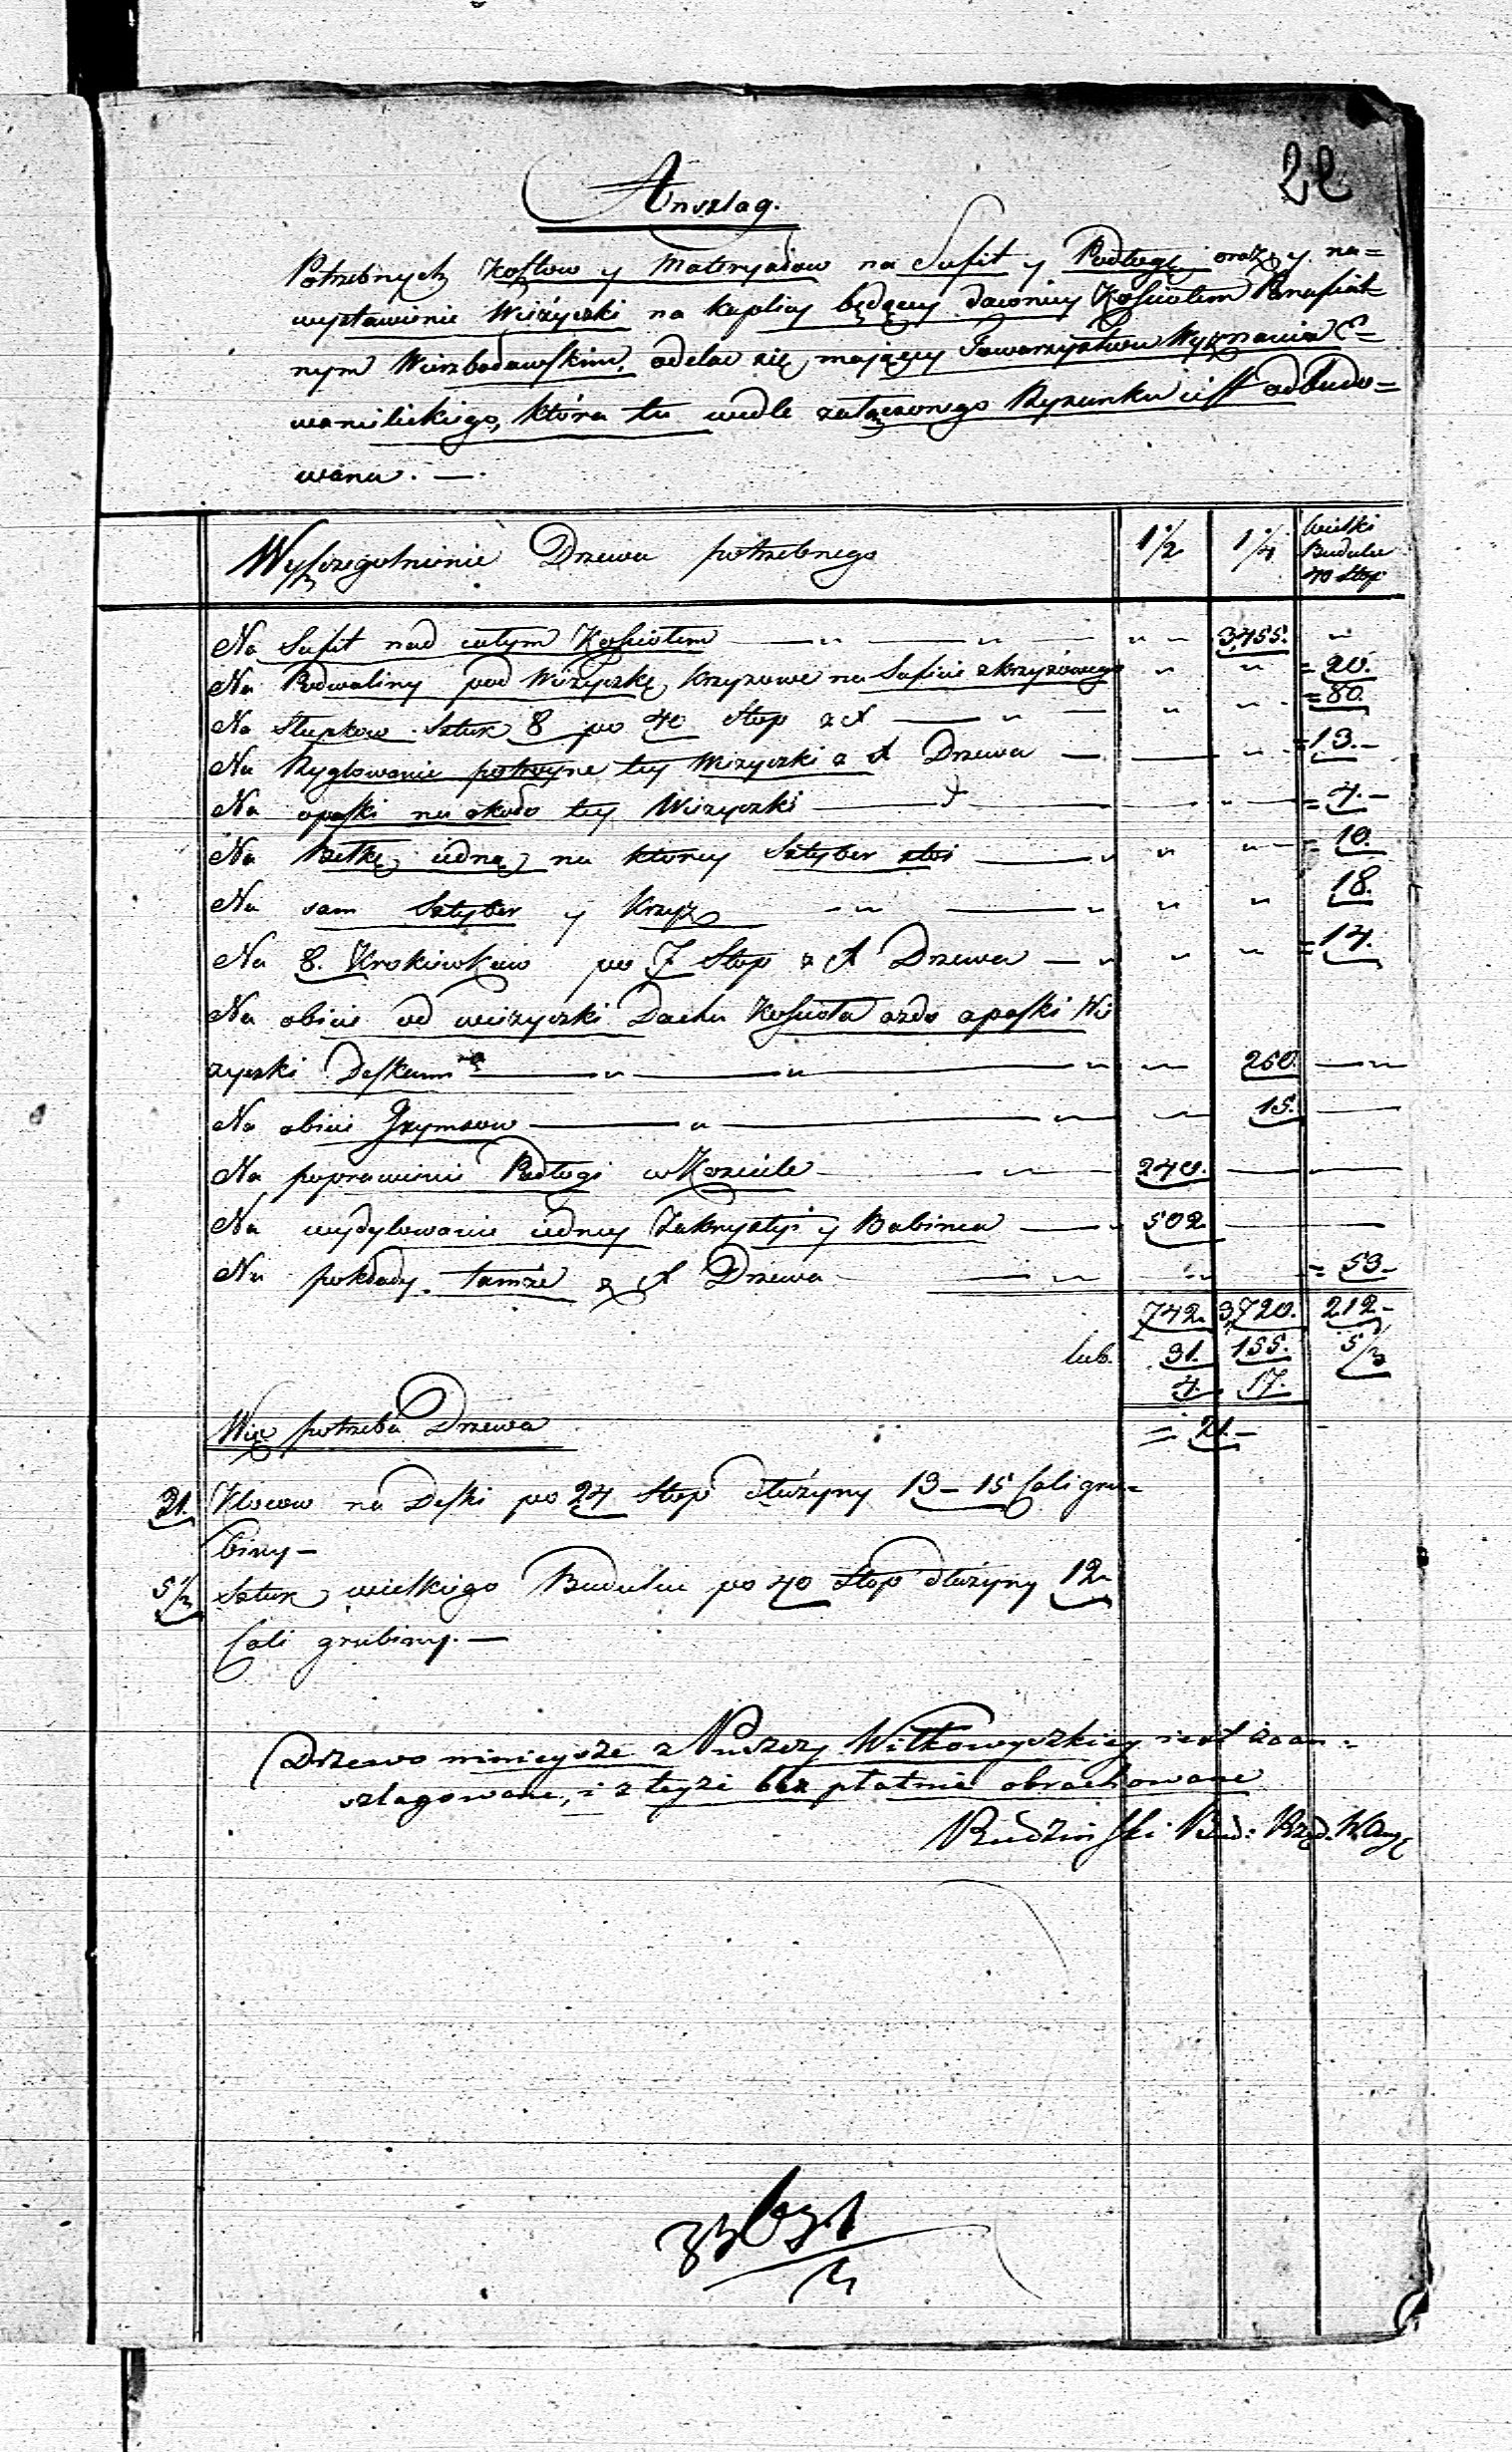 22
Anszlag.
Potrzebnych Kosztow y Materyałow na Sufit y Podłogę oraz y na=
wystawienie Wieżyczki na kaplicy będący dawniey Kosciołem Parafial-
nym Wierzbołowskim, oddac się mający Towarzystwu Wyznania E=
wanielickiego, która tu wedle załączonego Rysunku iest odbudo=
wana. —
Wyszczegolnienie Drzewa potrzebnego 1 1/2 1 1/4 Wielki Budulec 40 Stop
Na Sufit nad całym Kosciołem 3,455.
Na Podwaliny pod Wieżyczkę Krzyżowe na Suficie = 20.
Na Słupkow Sztuk 8 po 40 Stop = 80.
Na Ryglowanie potroyne tey Wiezyczki Drzewa = 13.-
Na opaski na około tey Wiezyczki = 4.-
Na Belkę iedną na ktorey Sztyber stoi = 10.
Na sam Sztyber y Krzyz 18.
Na 8. Krokiewkow po 7 Stop Drzewa = 14.
Na obicie od wiezyczki Dachu Koscioła azdo opaski Wie
zyczki Deskami 250.
Na obicie Gzymsow 15.
Na poprawienie Podłogi w Kosciele 240.
Na wydylowanie iedney Zakrystyi y Babinca 502.
Na pokłady tamże Drzewa = 53-
742. 3,720. 212-
lub. 31. 155. 5/3
4. 17.
= 21.-
Więc potrzeba Drzewa
21. Klocow na Deski po 24 Stop dłużyny 13-15 Cali gru=
biny-
5/3 Sztuk wielkiego Budulcu po 40 Stop dłużyny 12
Cali grubiny.-
Drzewo ninieysze z Puszczy Wiłkowyszkiey iest zaan=
szlagowane, i z teyże bez płatnie obrachowane
Rudzinski Bud: